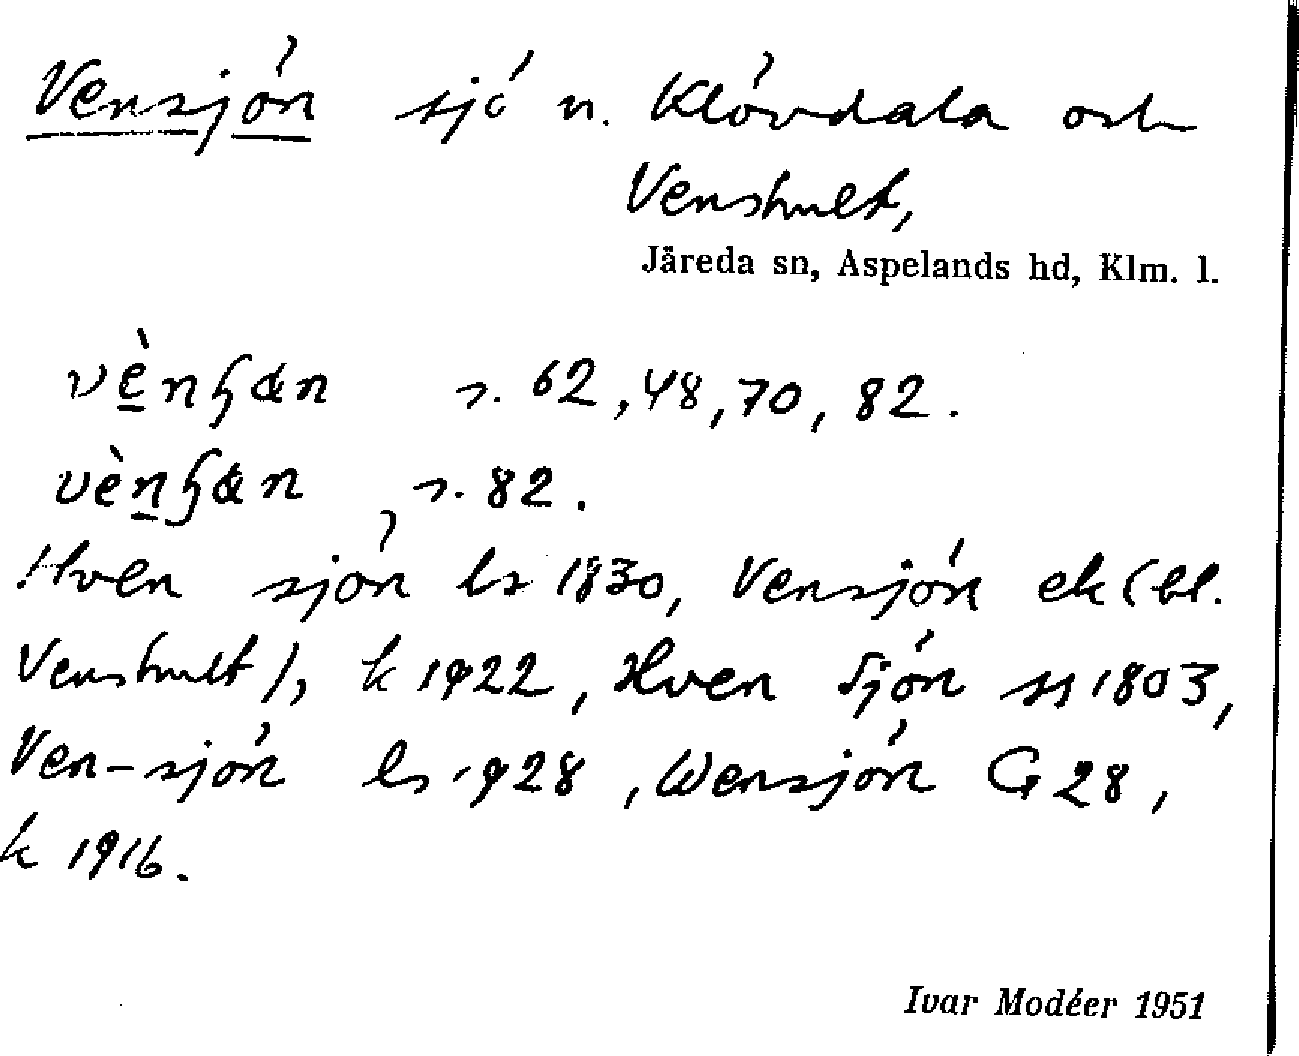 Vensjön sjö n. Klövdala och
Venshult,
Järeda sn, Aspelands hd, Klm. l.
s. 62, 48, 70, 82.
s. 82.
Hven sjön ls 1830, Vensjön ek (bl.
Venshult), k 1922, Hven Sjön ss 1803,
Ven-sjön ls 1928, Wensjön G 28,
k 1916.
Ivar Modéer 1951